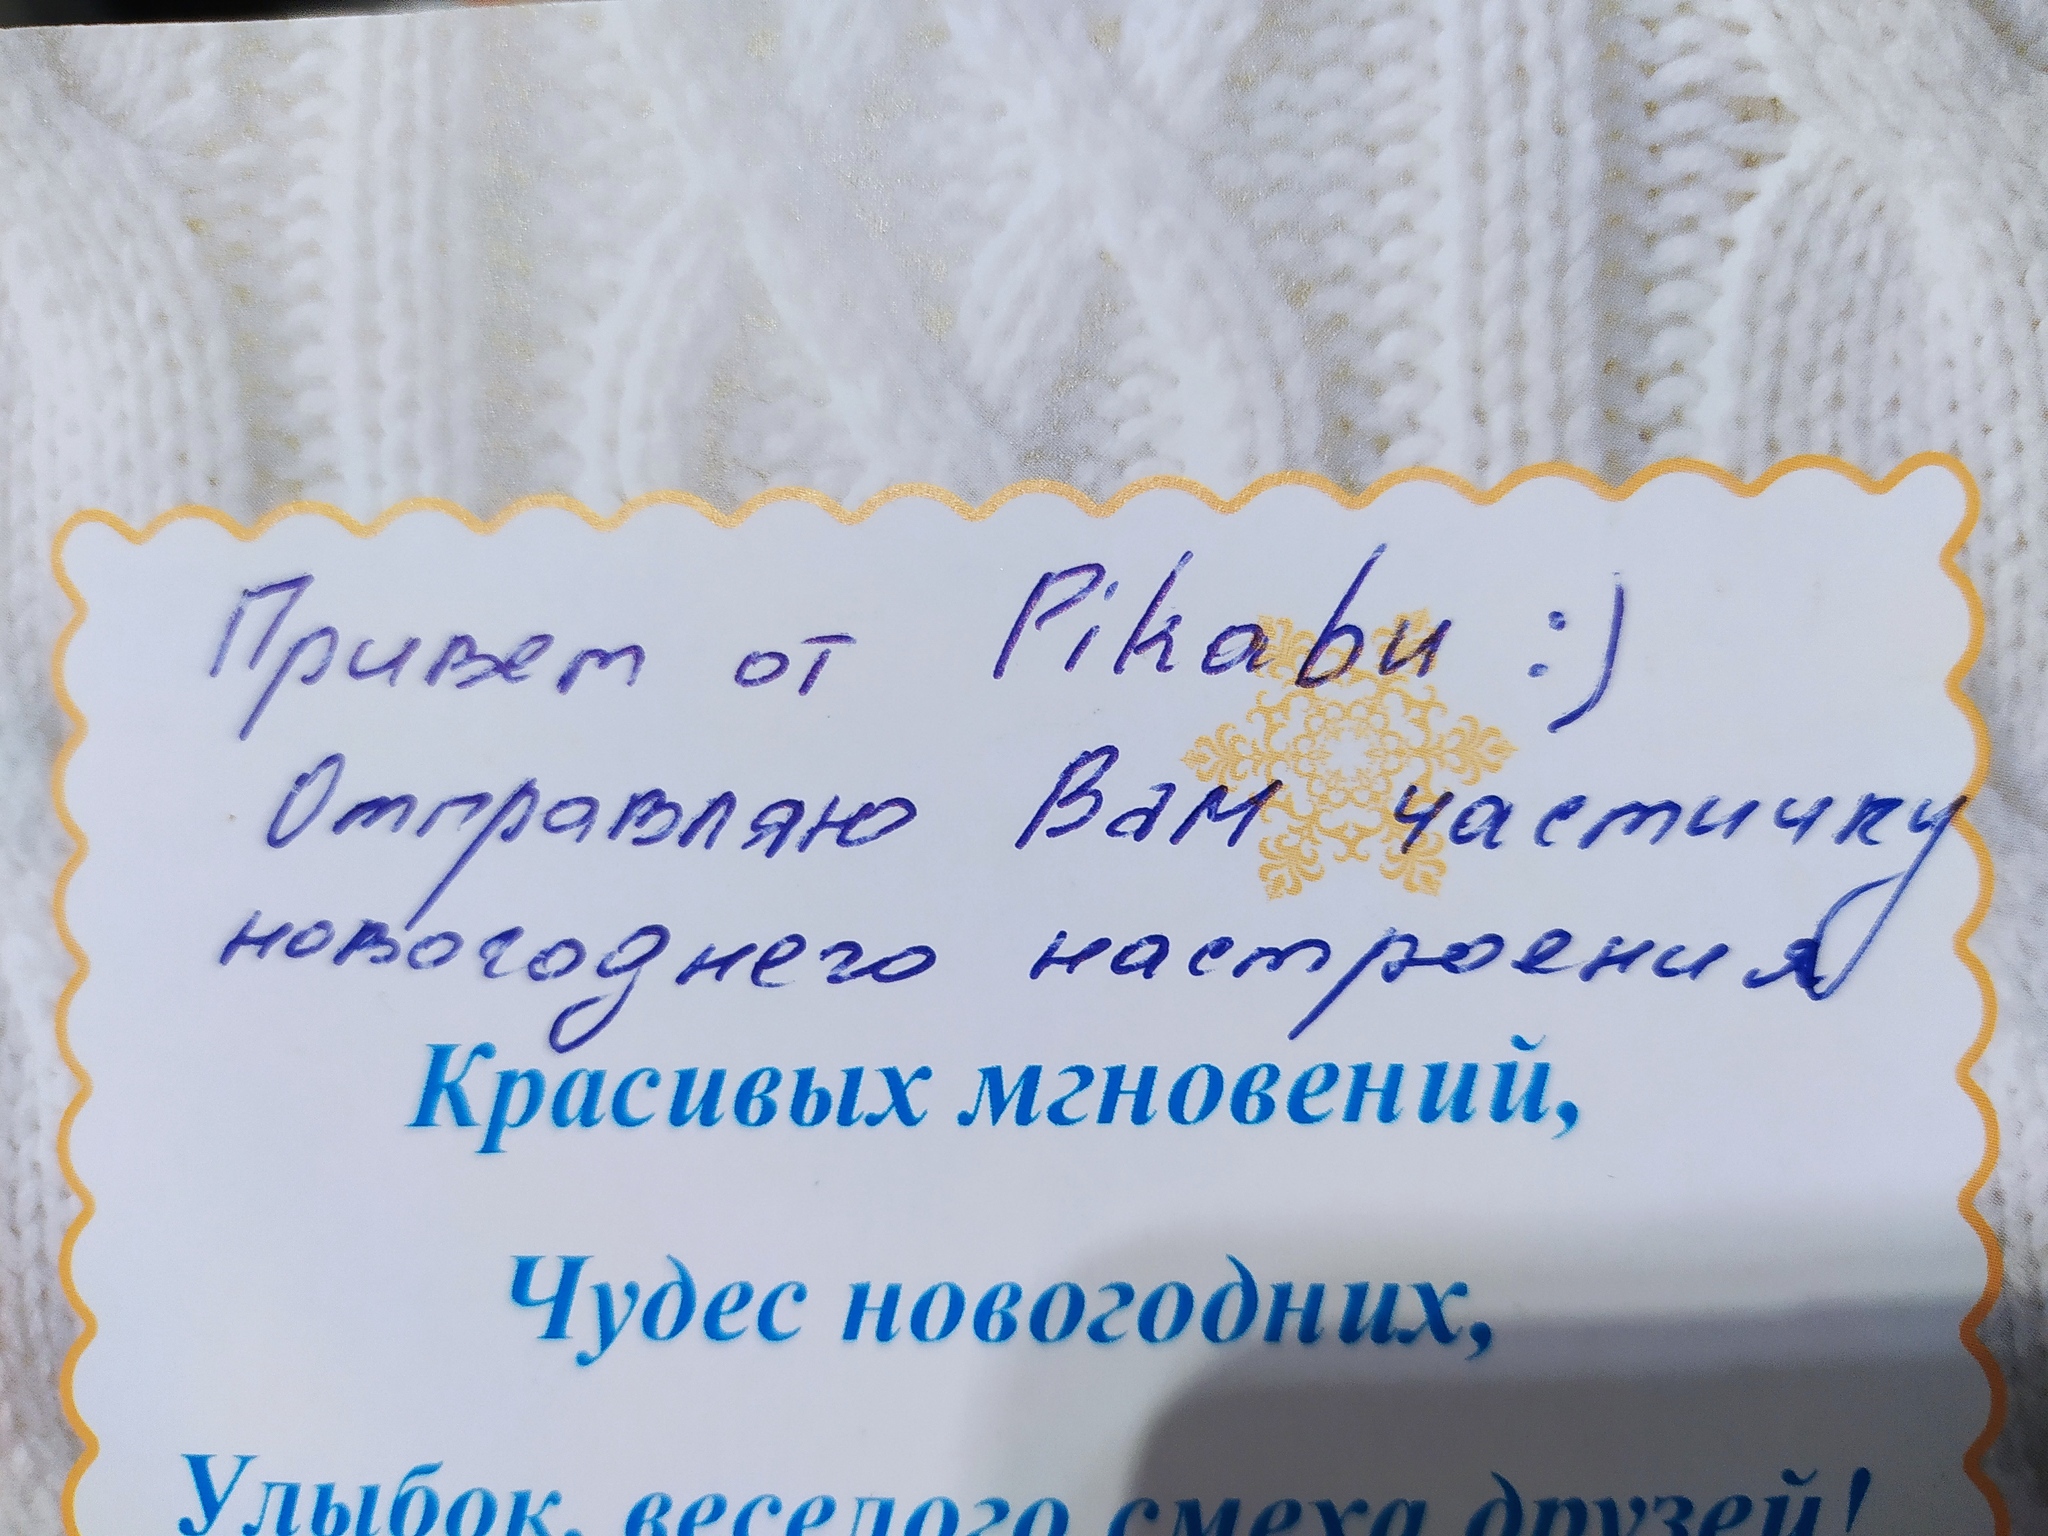 Привет от Pikabu :)
Отправляю Вам частичку
новогоднего настроения
Красивых мгновений,
Чудес новогодних,
Улыбок, веселого смеха друзей!